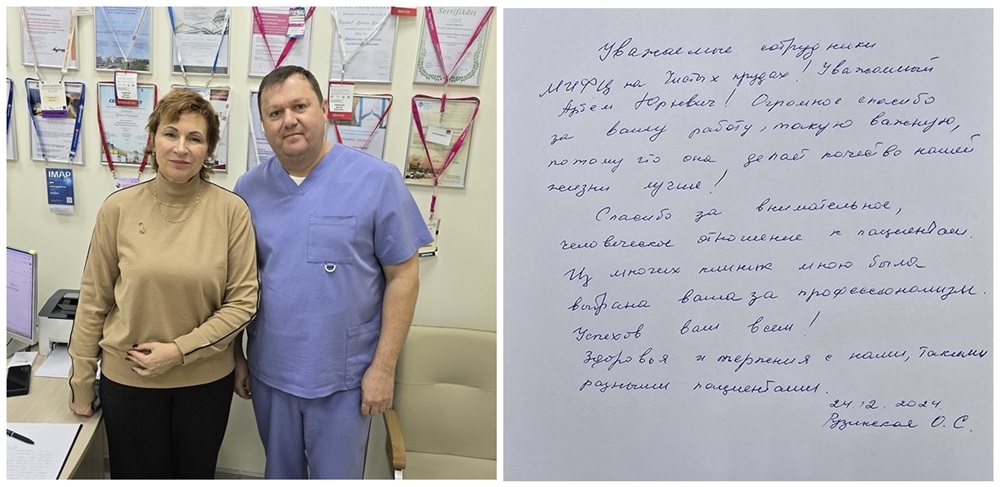 Sertifikāts
IMAP
Уважаемые сотрудники
МИФЦ на Чистых прудах! Уважаемый
Артем Юрьевич! Огромное спасибо
за вашу работу, такую важную,
потому что она делает качество нашей
жизни лучше!
Спасибо за внимательное,
человеческое отношение к пациентам.
Из многих клиник мною была
выбрана ваша за профессионализм.
Успехов вам всем!
Здоровья и терпения с нами, такими
разными пациентами.
24.12.2024.
О. С.